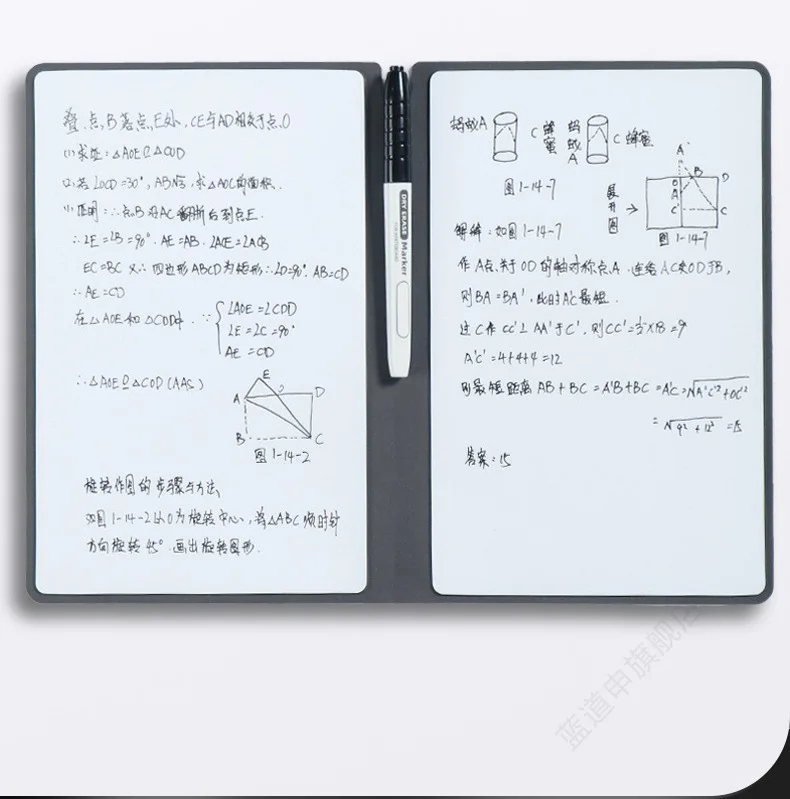 叠,点B落点E处,CE与AD相交于点O
(1)求证:△AOE≌△COD
(2)若∠OCD=30°,AB=√3,求△AOC的面积.
(1)证明:∵点B沿AC翻折后到点E.
∴∠E=∠B=90°.AE=AB.∠ACE=∠ACB
EC=BC 又∵四边形ABCD为矩形∴∠D=90°.AB=CD
∴AE=CD
在△AOE和△COD中.∵
∠AOE=∠COD
∠E=∠C=90°
AE=CD
∴△AOE≌△COD(AAS)
E
A
O
D
B
C
图1-14-2
旋转作图的步骤与方法、
如图1-14-2以O为旋转中心,将△ABC顺时针
方向旋转45°.画出旋转图形.
蚂蚁A
C蜂蜜
蚂蚁A
C蜂蜜
图1-14-7
展开图
A'
O
B
D
A
C'
C
图1-14-7
解释:如图1-14-7
作A点关于OD的轴对称点A'.连结A'C交OD于B,
则BA=BA',此时A'C最短.
过C作CC'⊥AA'于C',则CC'=½×18=9
A'C'=4+4+4=12
则最短距离AB+BC=A'B+BC=A'C=√A'C'²+CC'²
=√9²+12²=15
答案:15
DRY ERASE Marker
蓝道申旗舰店